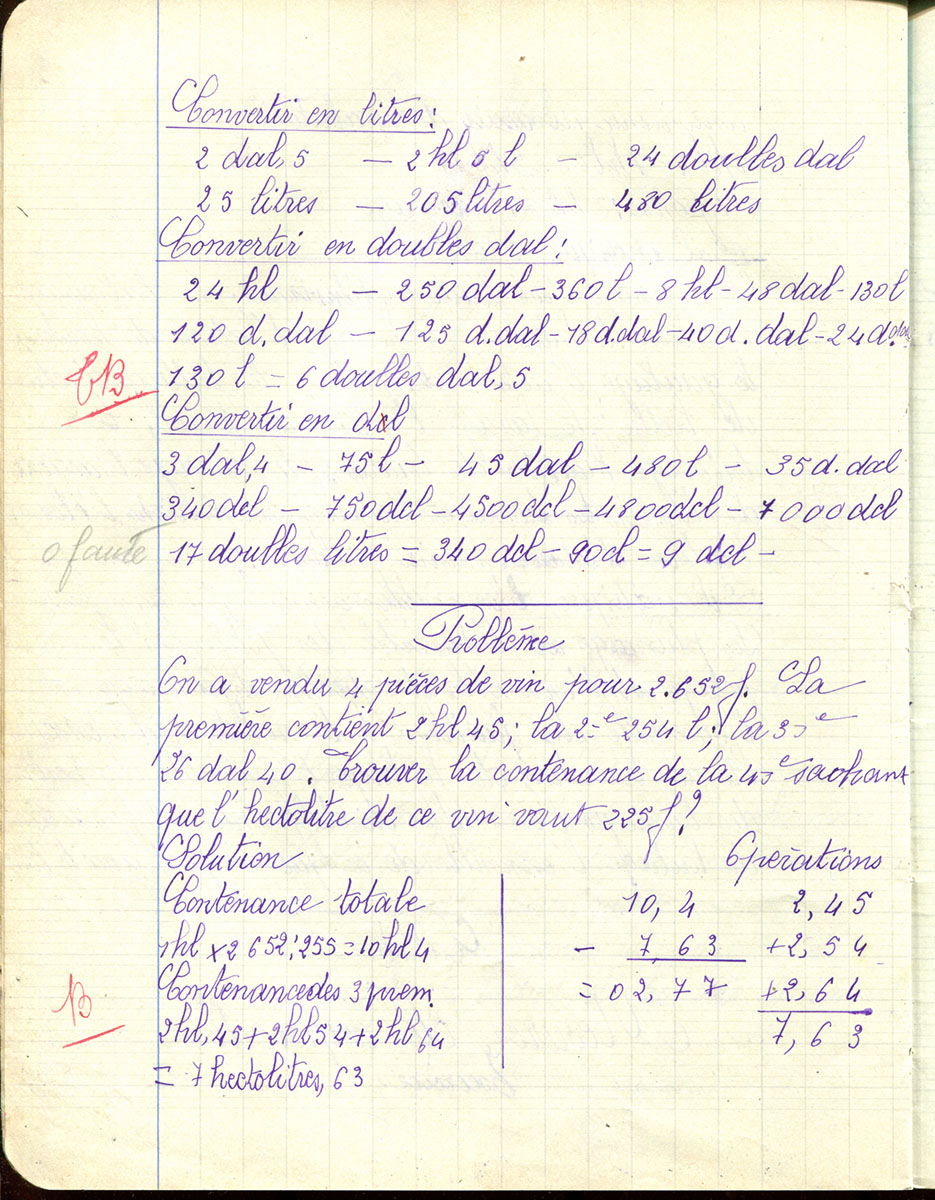 Convertir en litres:
2 dal 5 — 2 hl 5 l — 24 doubles dal
25 litres — 205 litres — 480 litres
Convertir en doubles dal:
24 hl — 250 dal - 360 l - 8 hl - 48 dal - 130 l
120 d. dal — 125 d. dal - 18 d. dal - 40 d. dal - 24 d. dal
TB
130 l = 6 doubles dal, 5
Convertir en dcl
3 dal, 4 - 75 l - 45 dal - 480 l - 35 d. dal
340 dcl - 750 dcl - 4500 dcl - 4800 dcl - 7000 dcl
0 faute
17 doubles litres = 340 dcl - 90 cl = 9 dcl -
Problème
On a vendu 4 pièces de vin pour 2.652 f. La
première contient 2 hl 45; la 2e 254 l; la 3e
26 dal 40. Trouver la contenance de la 4e sachant
que l'hectolitre de ce vin vaut 225 f?
Solution
Opérations
Contenance totale
1 hl × 2 652 : 255 = 10 hl 4
Contenance des 3 prem.
B
2 hl, 45 + 2 hl 54 + 2 hl 64
= 7 hectolitres, 63
10,4
- 7,63
= 02,77
2,45
+2,54
+2,64
7,63